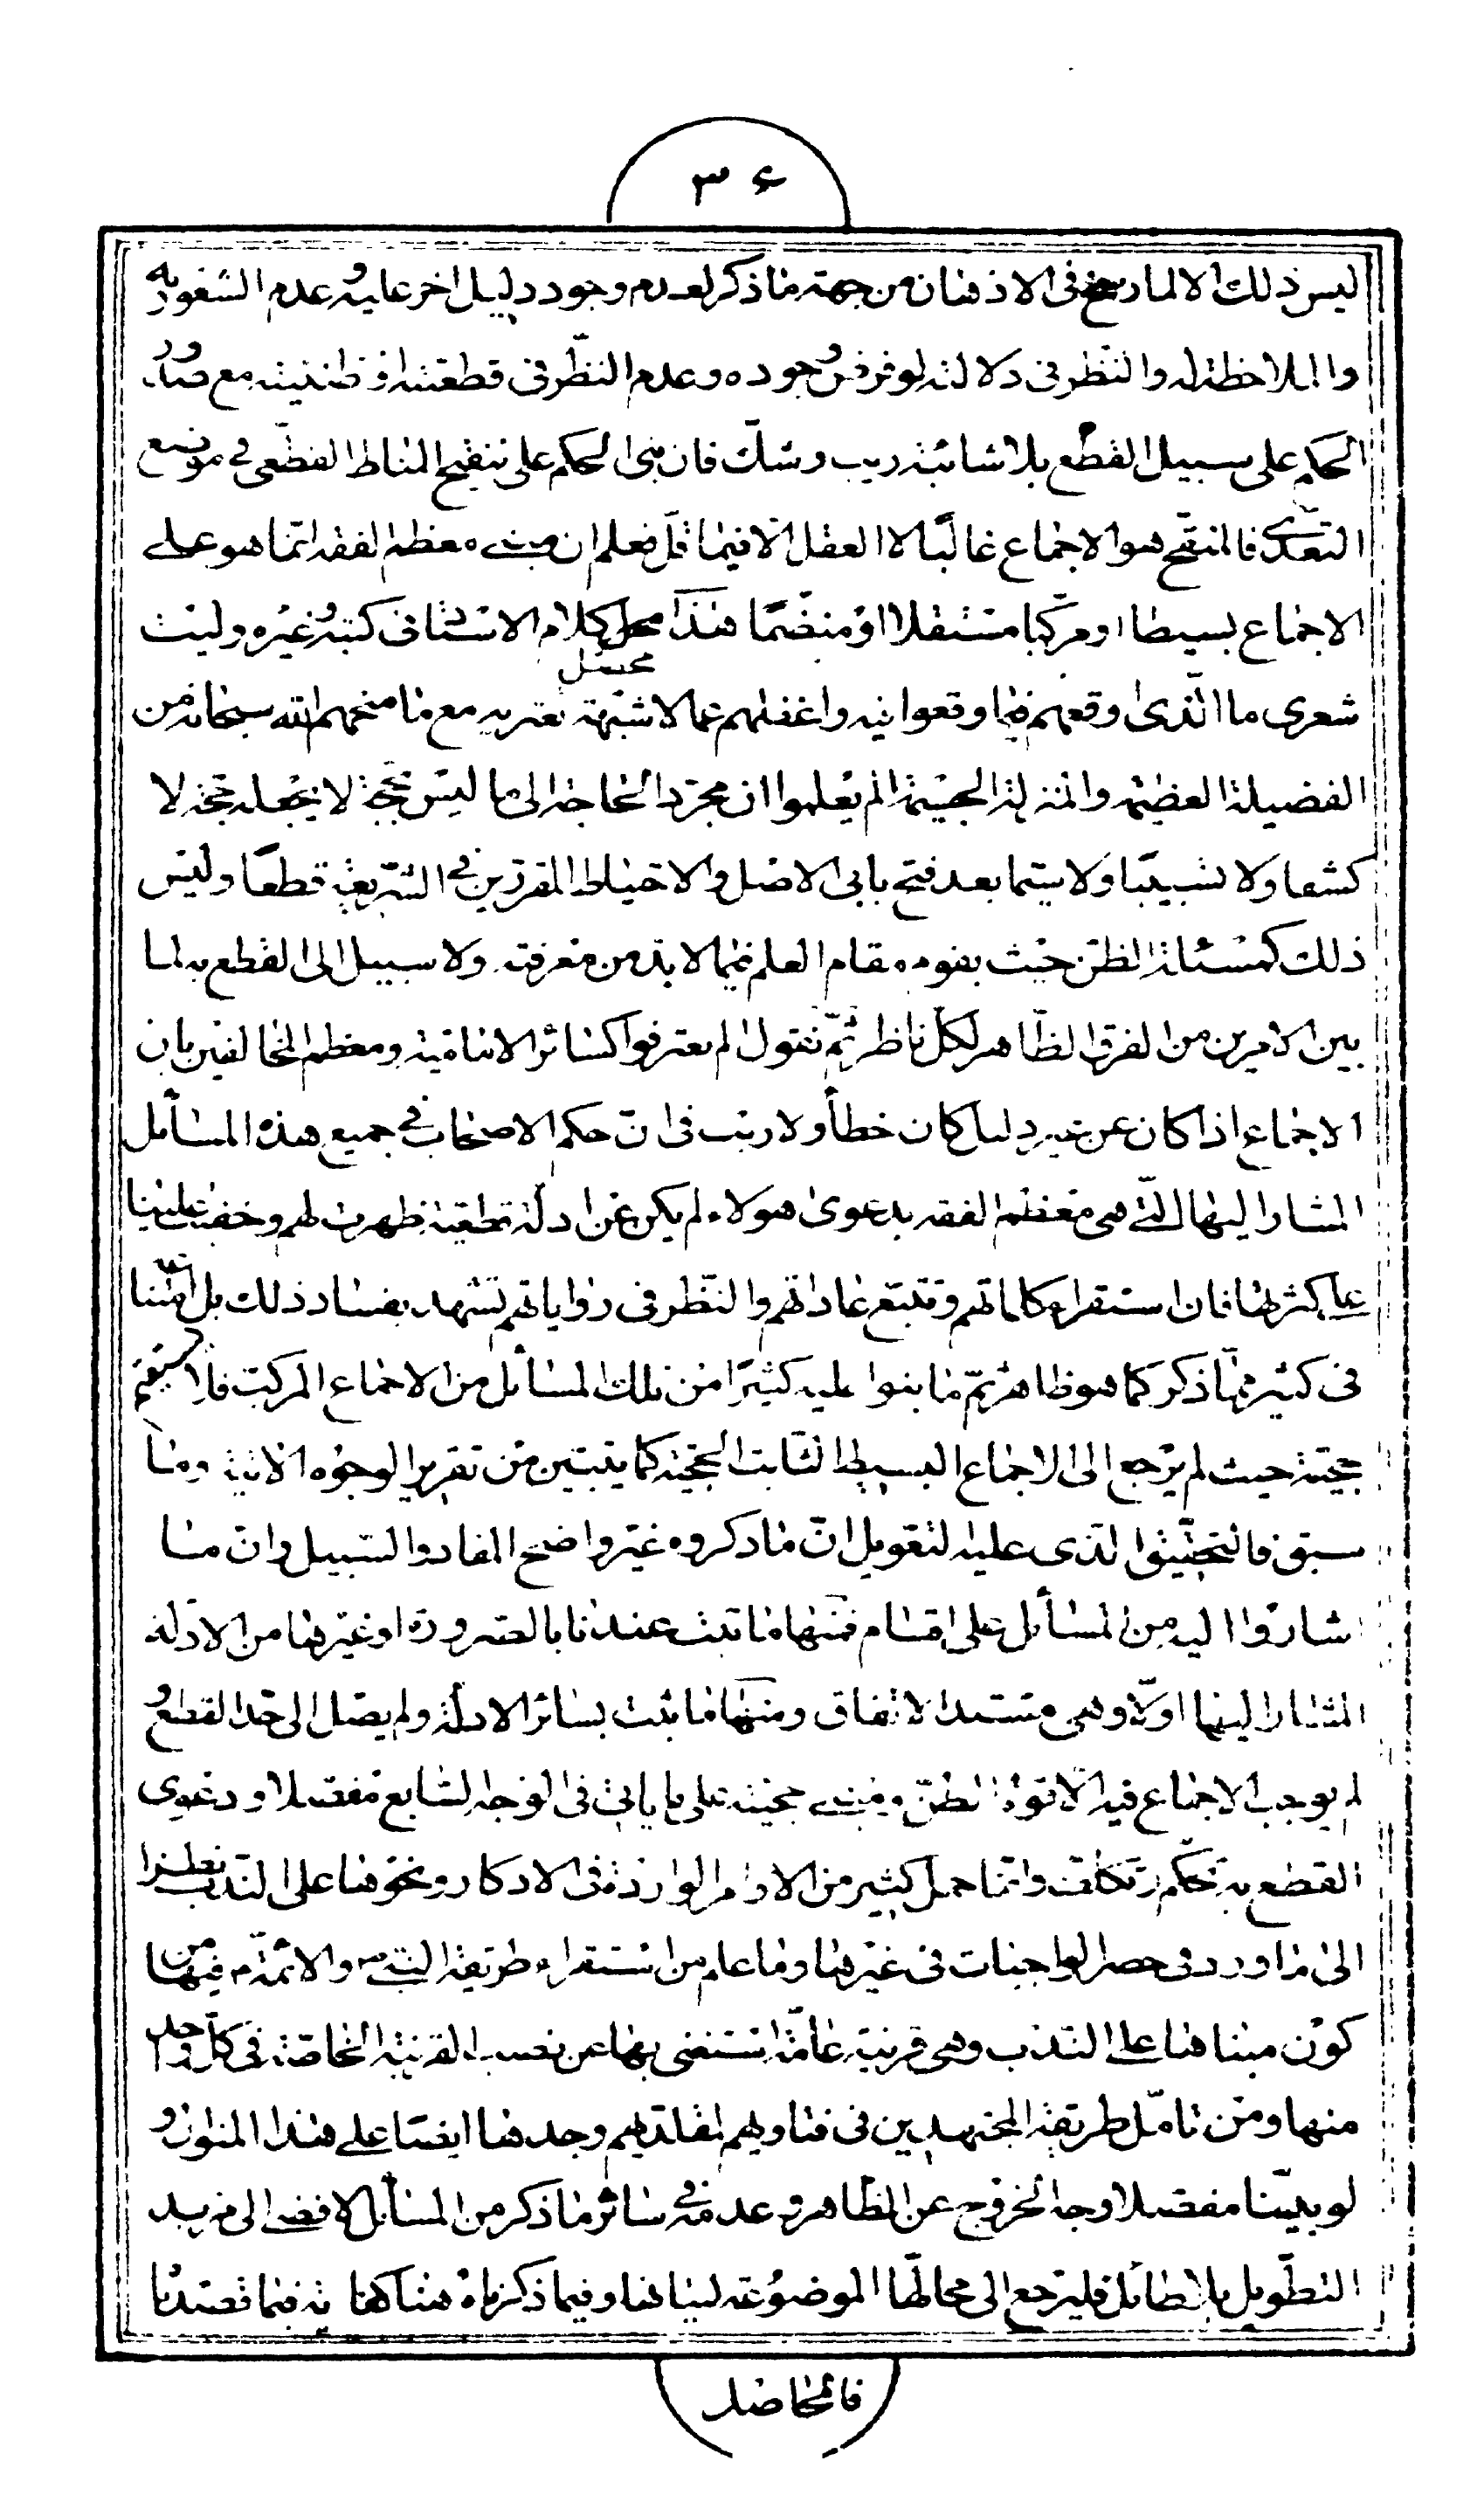 ٣٤
ليس ذلك الا لما رسخ فى الاذهان من جهة ما ذكر لعدم وجود دليل اخر عليه و عدم الشعور به
والملاحظة له والنظر فى دلالته لو فرض وجوده وعدم النظر فى قطعيته او ظنيته مع صدور
الحكم على سبيل القطع بلا شائبة ريب وشك فان بنى الحكم على تنقيح المناط القطعى فى موضع
التعدى فالمنقح هو الاجماع غالبًا لا العقل الا فيما قل فعلم ان مبنى معظم الفقه انما هو على
الاجماع بسيطا او مركبا مستقلا او منضمًا هذا محصل كلام الاستاد فى كتبه و غيره وليت
شعرى ما الذى اوقعهم فيما وقعوا فيه واغفلهم عما لا شبهة تعتريه مع ما منحهم الله سبحانه من
الفضيلة العظيمة والمنزلة الجسيمة الم يعلموا ان مجرد الحاجة الى ما ليس بحجة لا يجعله حجة لا
كشفا ولا تسبيبًا ولا سيما بعد فتح بابى الاصل والاحتياط المقررين فى الشريعة قطعًا وليس
ذلك كمسئلة الظن حيث يقوم مقام العلم فيما لا بد من معرفته ولا سبيل الى القطع به لما
بين الامرين من الفرق الظاهر لكل ناظر ثم نقول الم يعترفوا كسائر الامامية ومعظم المخالفين بان
الاجماع اذا كان عن غير دليل كان خطأ ولا ريب فى ان حكم الاصحاب فى جميع هذه المسائل
المشار اليها التى هى معظم الفقه بدعوى هولاء لم يكن عن ادلة قطعية ظهرت لهم وخفيت علينا
على كثرتها فان استقراء كلماتهم وتتبع عاداتهم والنظر فى رواياتهم تشهد بفساد ذلك بل
فى كثير مما ذكر كما هو ظاهر ثم ما بنوا عليه كثيرًا من تلك المسائل من الاجماع المركب فلا يستقيم
حجيته حيث لم يرجع الى الاجماع البسيط الثابت الحجية كما يتبين من تقرير الوجوه الاتية وما
سبق فالتحقيق الذى عليه التعويل ان ما ذكروه غير واضح المفاد والسبيل وان ما
اشاروا اليه من المسائل على اقسام فمنها ما ثبت عندنا بالضرورة او غيرها من الادلة
المشار اليها اولا وهى مستند الاتفاق ومنها ما ثبت بسائر الادلة ولم يصل الى حد القطع و
لم يوجب الاجماع فيه الا قوة الظن ومبنى حجيته على ما ياتى فى الوجه السابع مفصلا ودعوى
القطع به تحكم وتكلف وانما حمل كثير من الاوامر الواردة فى الاذكار ونحوها على الندب نظرا
الى ما ورد فى حصر الواجبات فى غيرها وما علم من استقراء طريقة النبى ص والائمة ع فيها من
كون مبناها على الندب وهى قرينة عامة استغنى بها عن نصب القرينة الخاصة فى كل واحد
منها ومن تامل طريقة المجتهدين فى فتاويهم لمقلديهم وجدها ايضا على هذا المنوال و
لو بينا مفصلا وجه الخروج عن الظاهر و عدمه فى سائر ما ذكر من المسائل لافضى الى مزيد
التطويل بلا طائل فليرجع الى محالها الموضوعة لبيانها وفيما ذكرناه هنا كفاية فيما قصدنا
فالحاصل